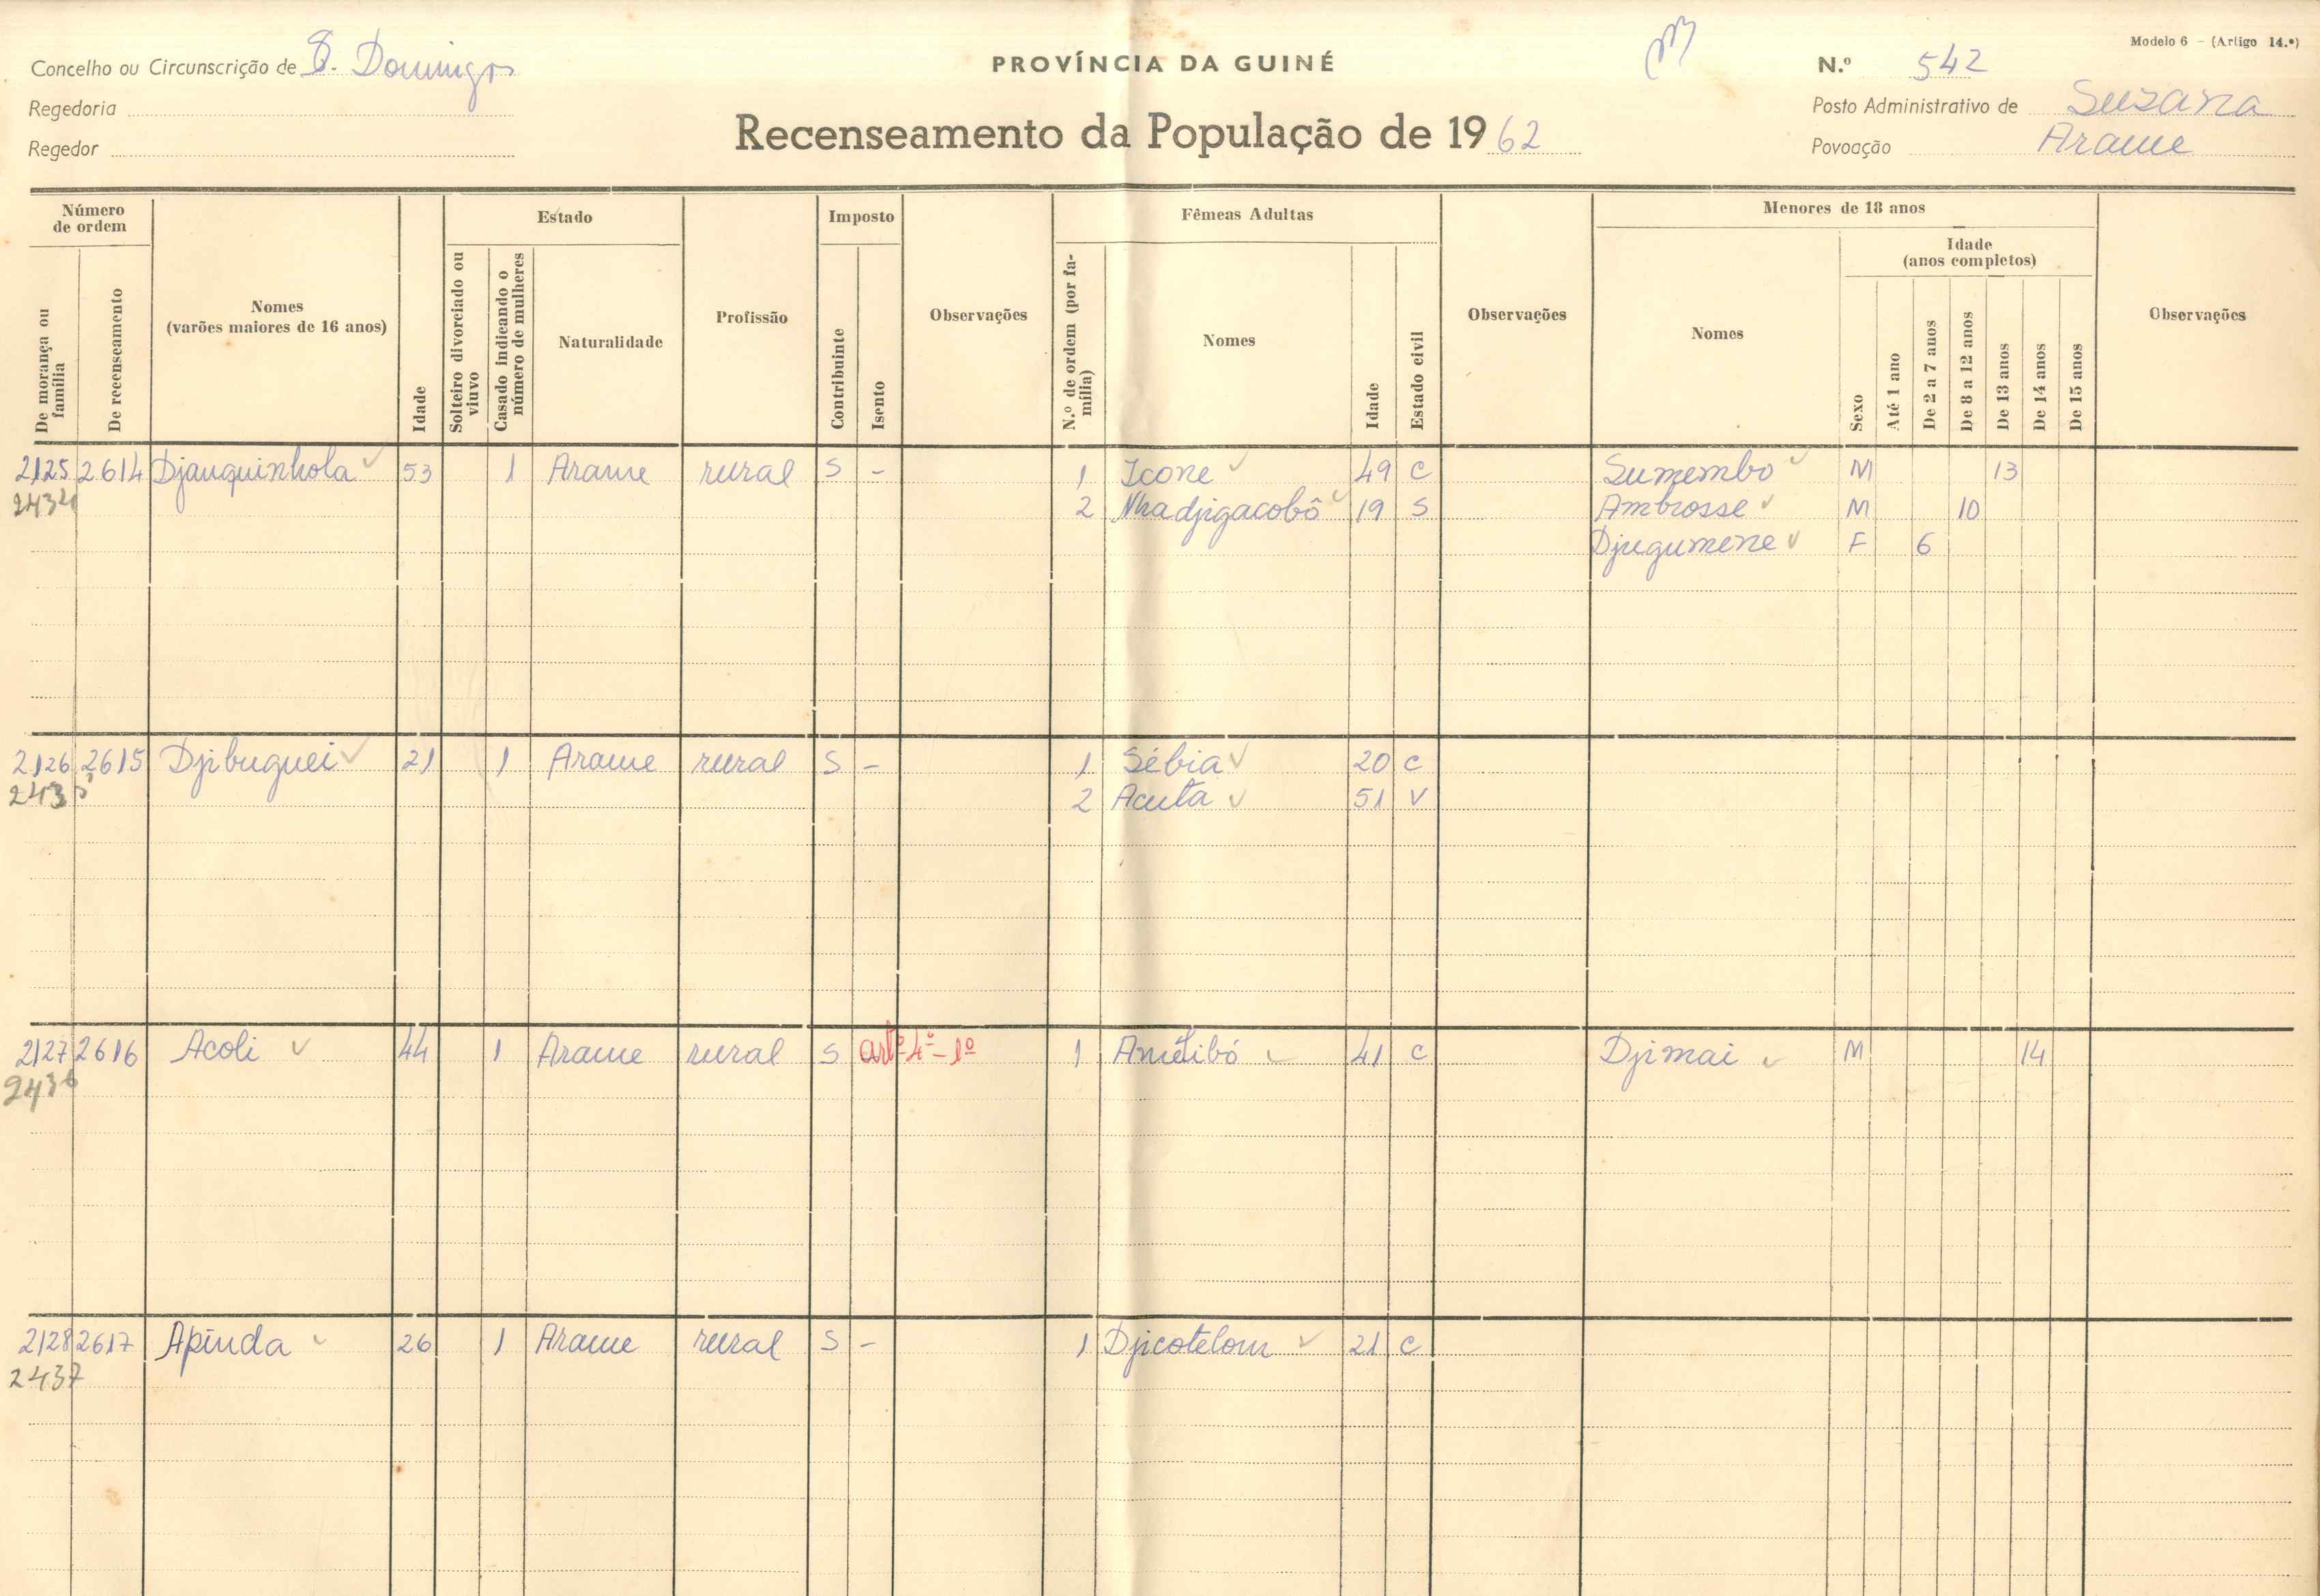 Modelo 6 – (Artigo 14.º)
Concelho ou Circunscrição de S. Domingos
PROVÍNCIA DA GUINÉ
N.º 542
Regedoria
Posto Administrativo de Suzana
Regedor
Recenseamento da População de 1962
Povoação Arame
Número de ordem
Estado
Imposto
Fêmeas Adultas
Menores de 18 anos
Idade (anos completos)
De morança ou família
De recenseamento
Nomes (varões maiores de 16 anos)
Idade
Solteiro divorciado ou viuvo
Casado indicando o número de mulheres
Naturalidade
Profissão
Contribuinte
Isento
Observações
N.º de ordem (por família)
Nomes
Idade
Estado civil
Observações
Nomes
Sexo
Até 1 ano
De 2 a 7 anos
De 8 a 12 anos
De 13 anos
De 14 anos
De 15 anos
Observações
2125 2614 Djauquinhola 53 1 Arame rural S - 1 Icone 49 C Sumembo M 13
2434 2 Nhadjigacobô 19 S Ambrosse M 10
Djugumene F 6
2126 2615 Djibuguei 21 1 Arame rural S - 1 Sébia 20 C
2435 2 Acuta 51 V
2127 2616 Acoli 44 1 Arame rural S artº 4º - 1º 1 Amélibó 41 C Djimai M 14
2436
2128 2617 Apinda 26 1 Arame rural S - 1 Djicotelom 21 C
2437